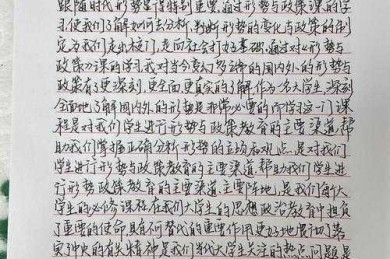 跟随时代形势显得特别重要,通过形势与政策课的学
习,使我们了解如何去分析,判断形势的变化与政策的制
定,为我们走出校门,走向社会打好基础,通过对《形势与
政策》课的学习,我对当今变幻多端的国内外的形势与
政策有了更深刻,更全面,更真实的了解,作为一名大学生,深刻
全面地了解国内外的形势是非常必要的,而学习这一门课
程是对我们学生进行形势与政策教育的主要渠道,帮
助我们掌握正确分析形势的立场和观点,是对我们
学生进行形势与政策教育的主要渠道,帮助我们学生进
行形势政策教育的主要渠道,主要阵地,是我们每个大
学生的必修课程,在我们大学生的思想政治教育中担负
了重要的使命,具有不可替代的重要作用,更好地贯彻落
实中央的有关精神,是我们当代大学生关注的热点问题,是